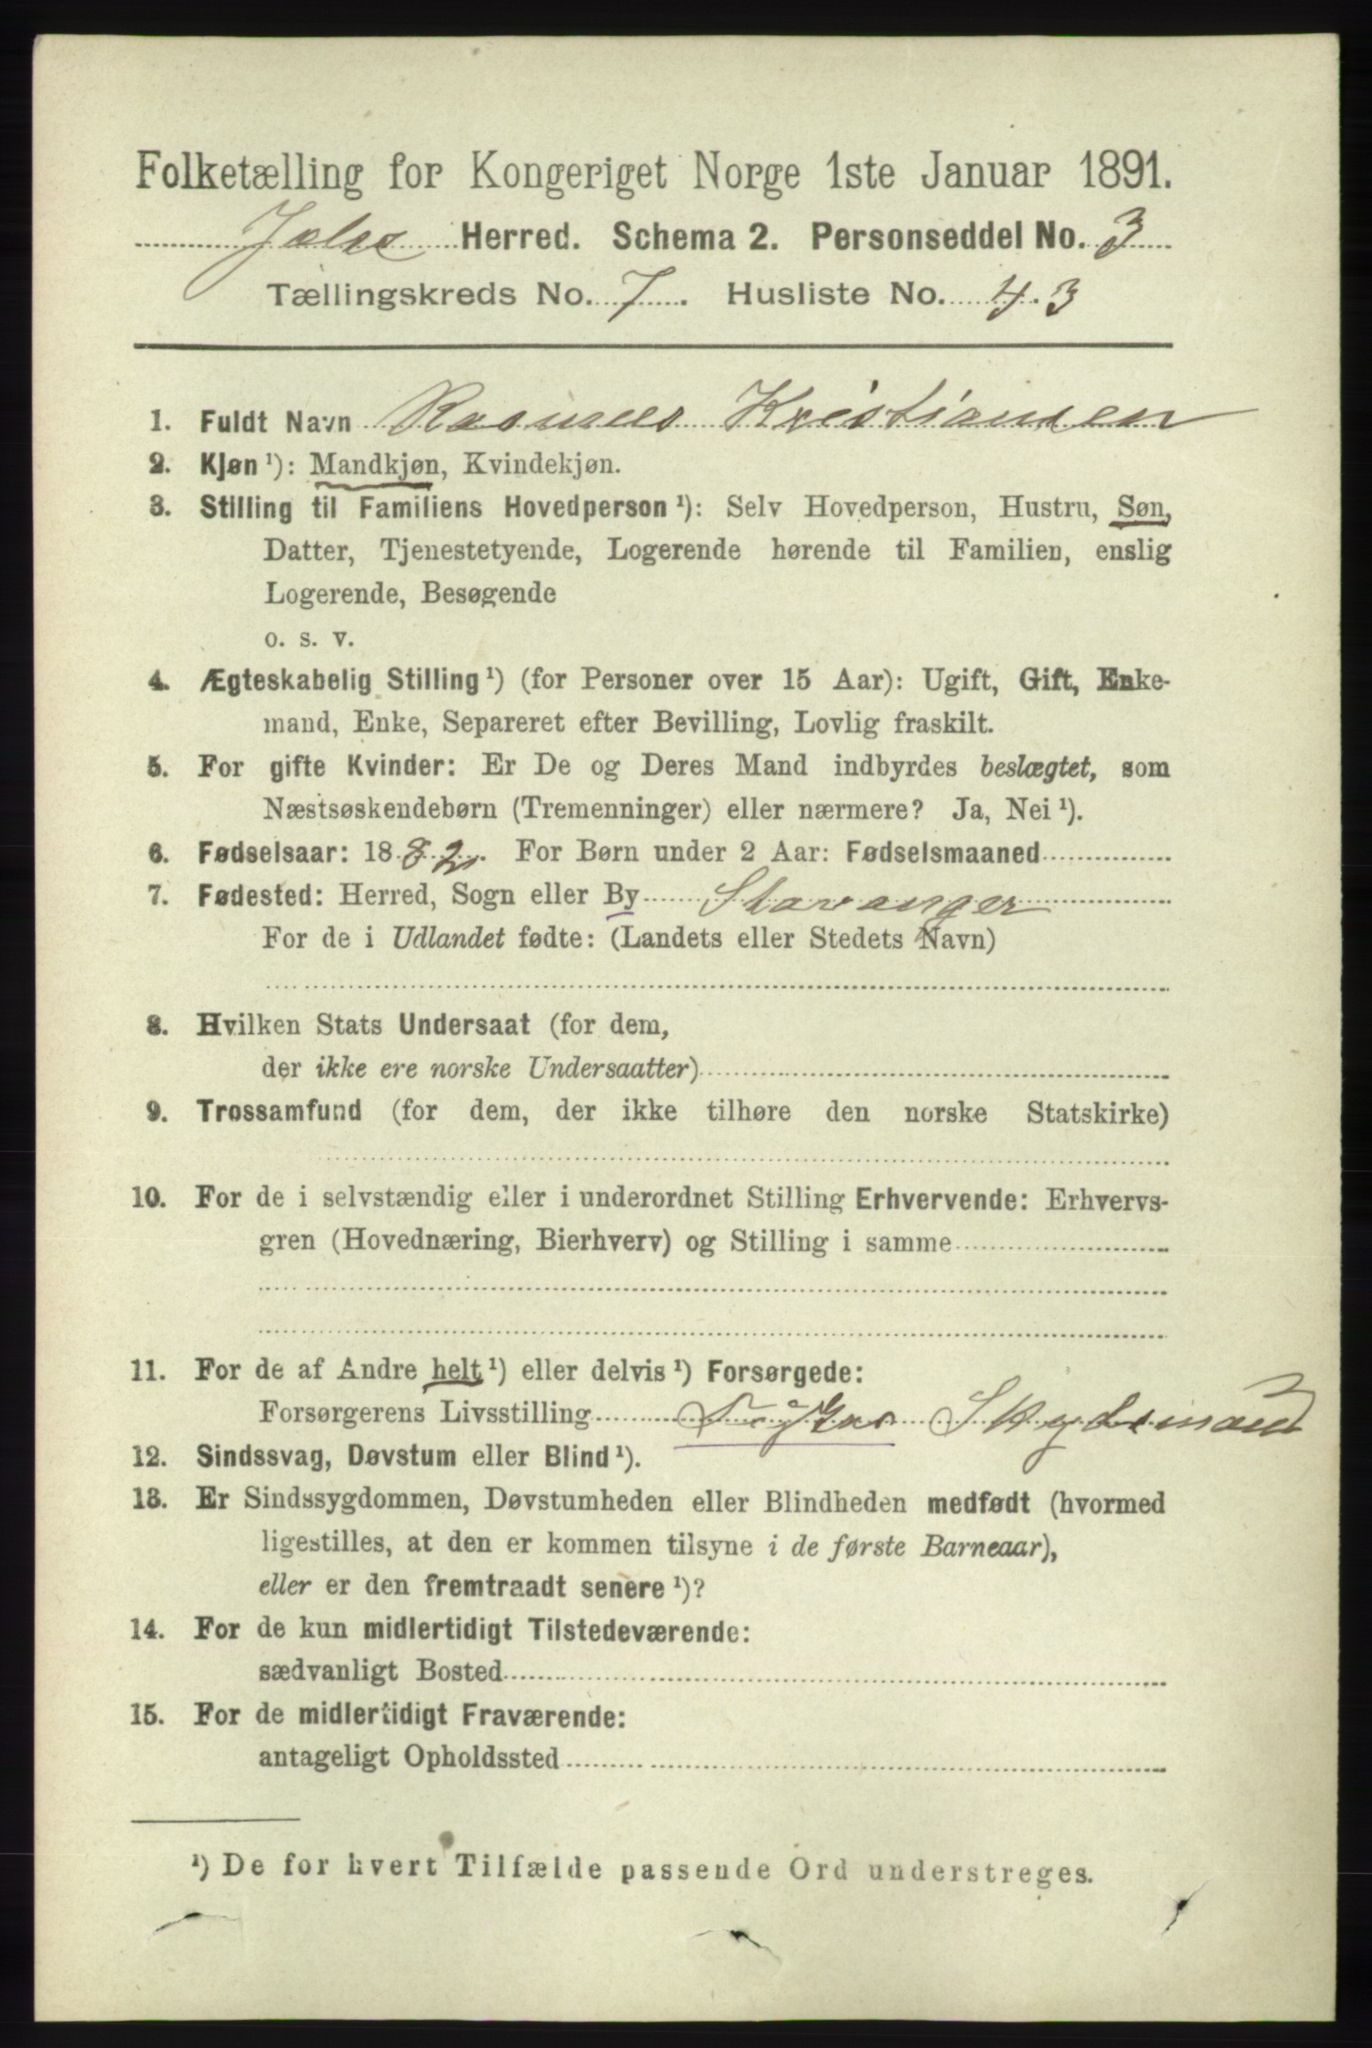 Folketælling for Kongeriget Norge 1ste Januar 1891.
Jelse Herred. Schema 2. Personseddel No. 3
Tællingskreds No. 7. Husliste No. 43
1. Fuldt Navn Rasmus Kristiansen
2. Kjøn ¹): Mandkjøn, Kvindekjøn.
3. Stilling til Familiens Hovedperson ¹): Selv Hovedperson, Hustru, Søn,
Datter, Tjenestetyende, Logerende hørende til Familien, enslig
Logerende, Besøgende
o. s. v.
4. Ægteskabelig Stilling ¹) (for Personer over 15 Aar): Ugift, Gift, Enke-
mand, Enke, Separeret efter Bevilling, Lovlig fraskilt.
5. For gifte Kvinder: Er De og Deres Mand indbyrdes beslægtet, som
Næstsøskendebørn (Tremenninger) eller nærmere? Ja, Nei ¹).
6. Fødselsaar: 1882. For Børn under 2 Aar: Fødselsmaaned
7. Fødested: Herred, Sogn eller By Stavanger
For de i Udlandet fødte: (Landets eller Stedets Navn)
8. Hvilken Stats Undersaat (for dem,
der ikke ere norske Undersaatter)
9. Trossamfund (for dem, der ikke tilhøre den norske Statskirke)
10. For de i selvstændig eller i underordnet Stilling Erhvervende: Erhvervs-
gren (Hovednæring, Bierhverv) og Stilling i samme
11. For de af Andre helt ¹) eller delvis ¹) Forsørgede:
Forsørgerens Livsstilling Skydsmand
12. Sindssvag, Døvstum eller Blind ¹).
13. Er Sindssygdommen, Døvstumheden eller Blindheden medfødt (hvormed
ligestilles, at den er kommen tilsyne i de første Barneaar),
eller er den fremtraadt senere ¹)?
14. For de kun midlertidigt Tilstedeværende:
sædvanligt Bosted
15. For de midlertidigt Fraværende:
antageligt Opholdssted
¹) De for hvert Tilfælde passende Ord understreges.